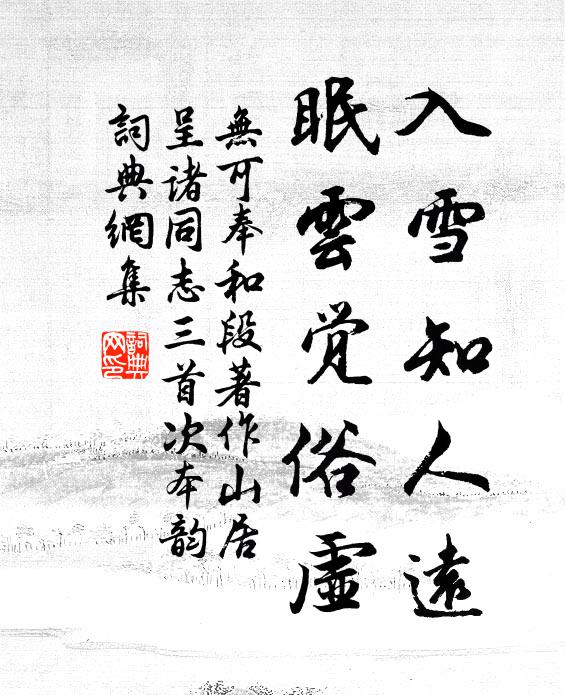 入雪知人遠
眠雲覺俗虛
無可奉和段著作山居
呈诸同志三首次本韵
詞典網集
詞典网印